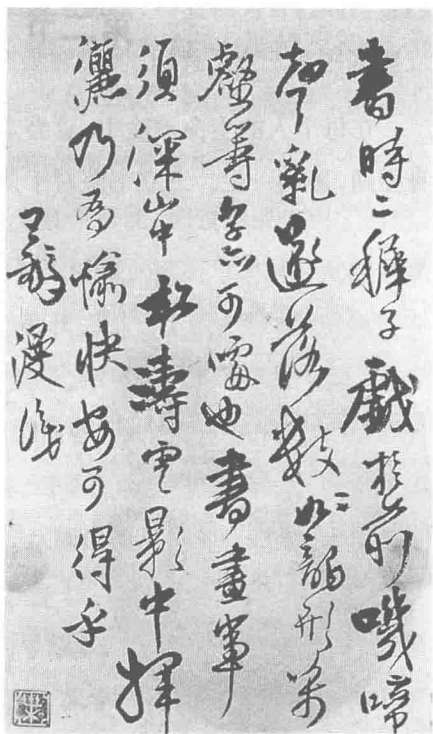 書時二稺子戲於前嘰啼
聲亂遂落數如龍形萬
壑等字亦可噱也書畫事
須深山中松濤雲影中揮
灑乃為愉快安可得乎
王鐸漫識